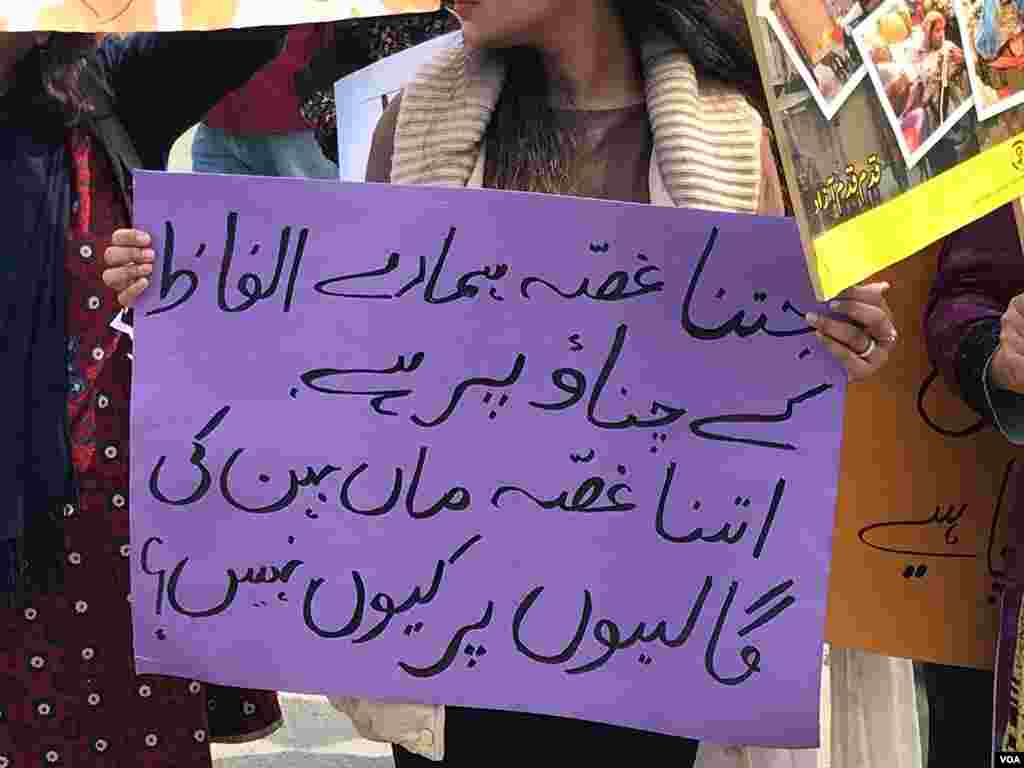 جتنا غصّہ ہمارے الفاظ
کے چناؤ پر ہے
اتنا غصّہ ماں بہن کی
گالیوں پر کیوں نہیں؟
قدم قدم آزاد
ہے
VOA